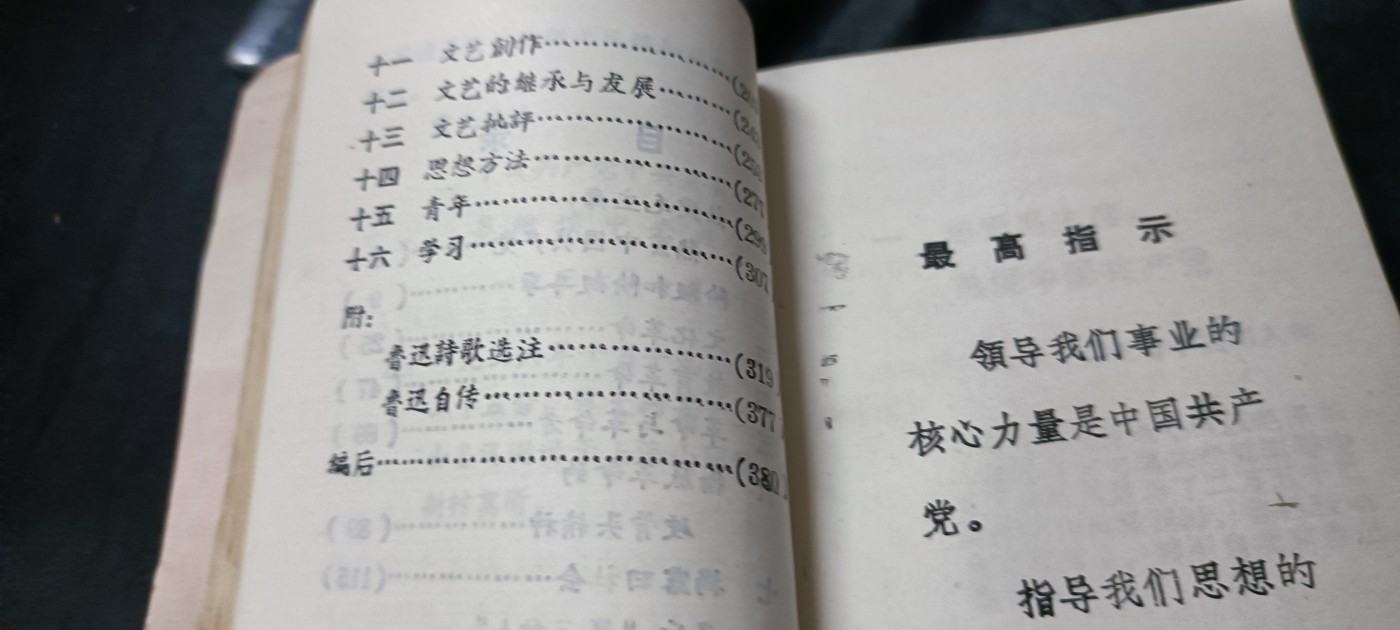 十一 文艺創作……(2
十二 文艺的继承与发展……(24
十三 文艺批評……(25
十四 思想方法……(277
十五 青年……(29
十六 学习……(307
附:
魯迅詩歌选注……(319
魯迅自传……(377
编后……(380
最高指示
領导我们事业的
核心力量是中国共产
党。
指导我们思想的